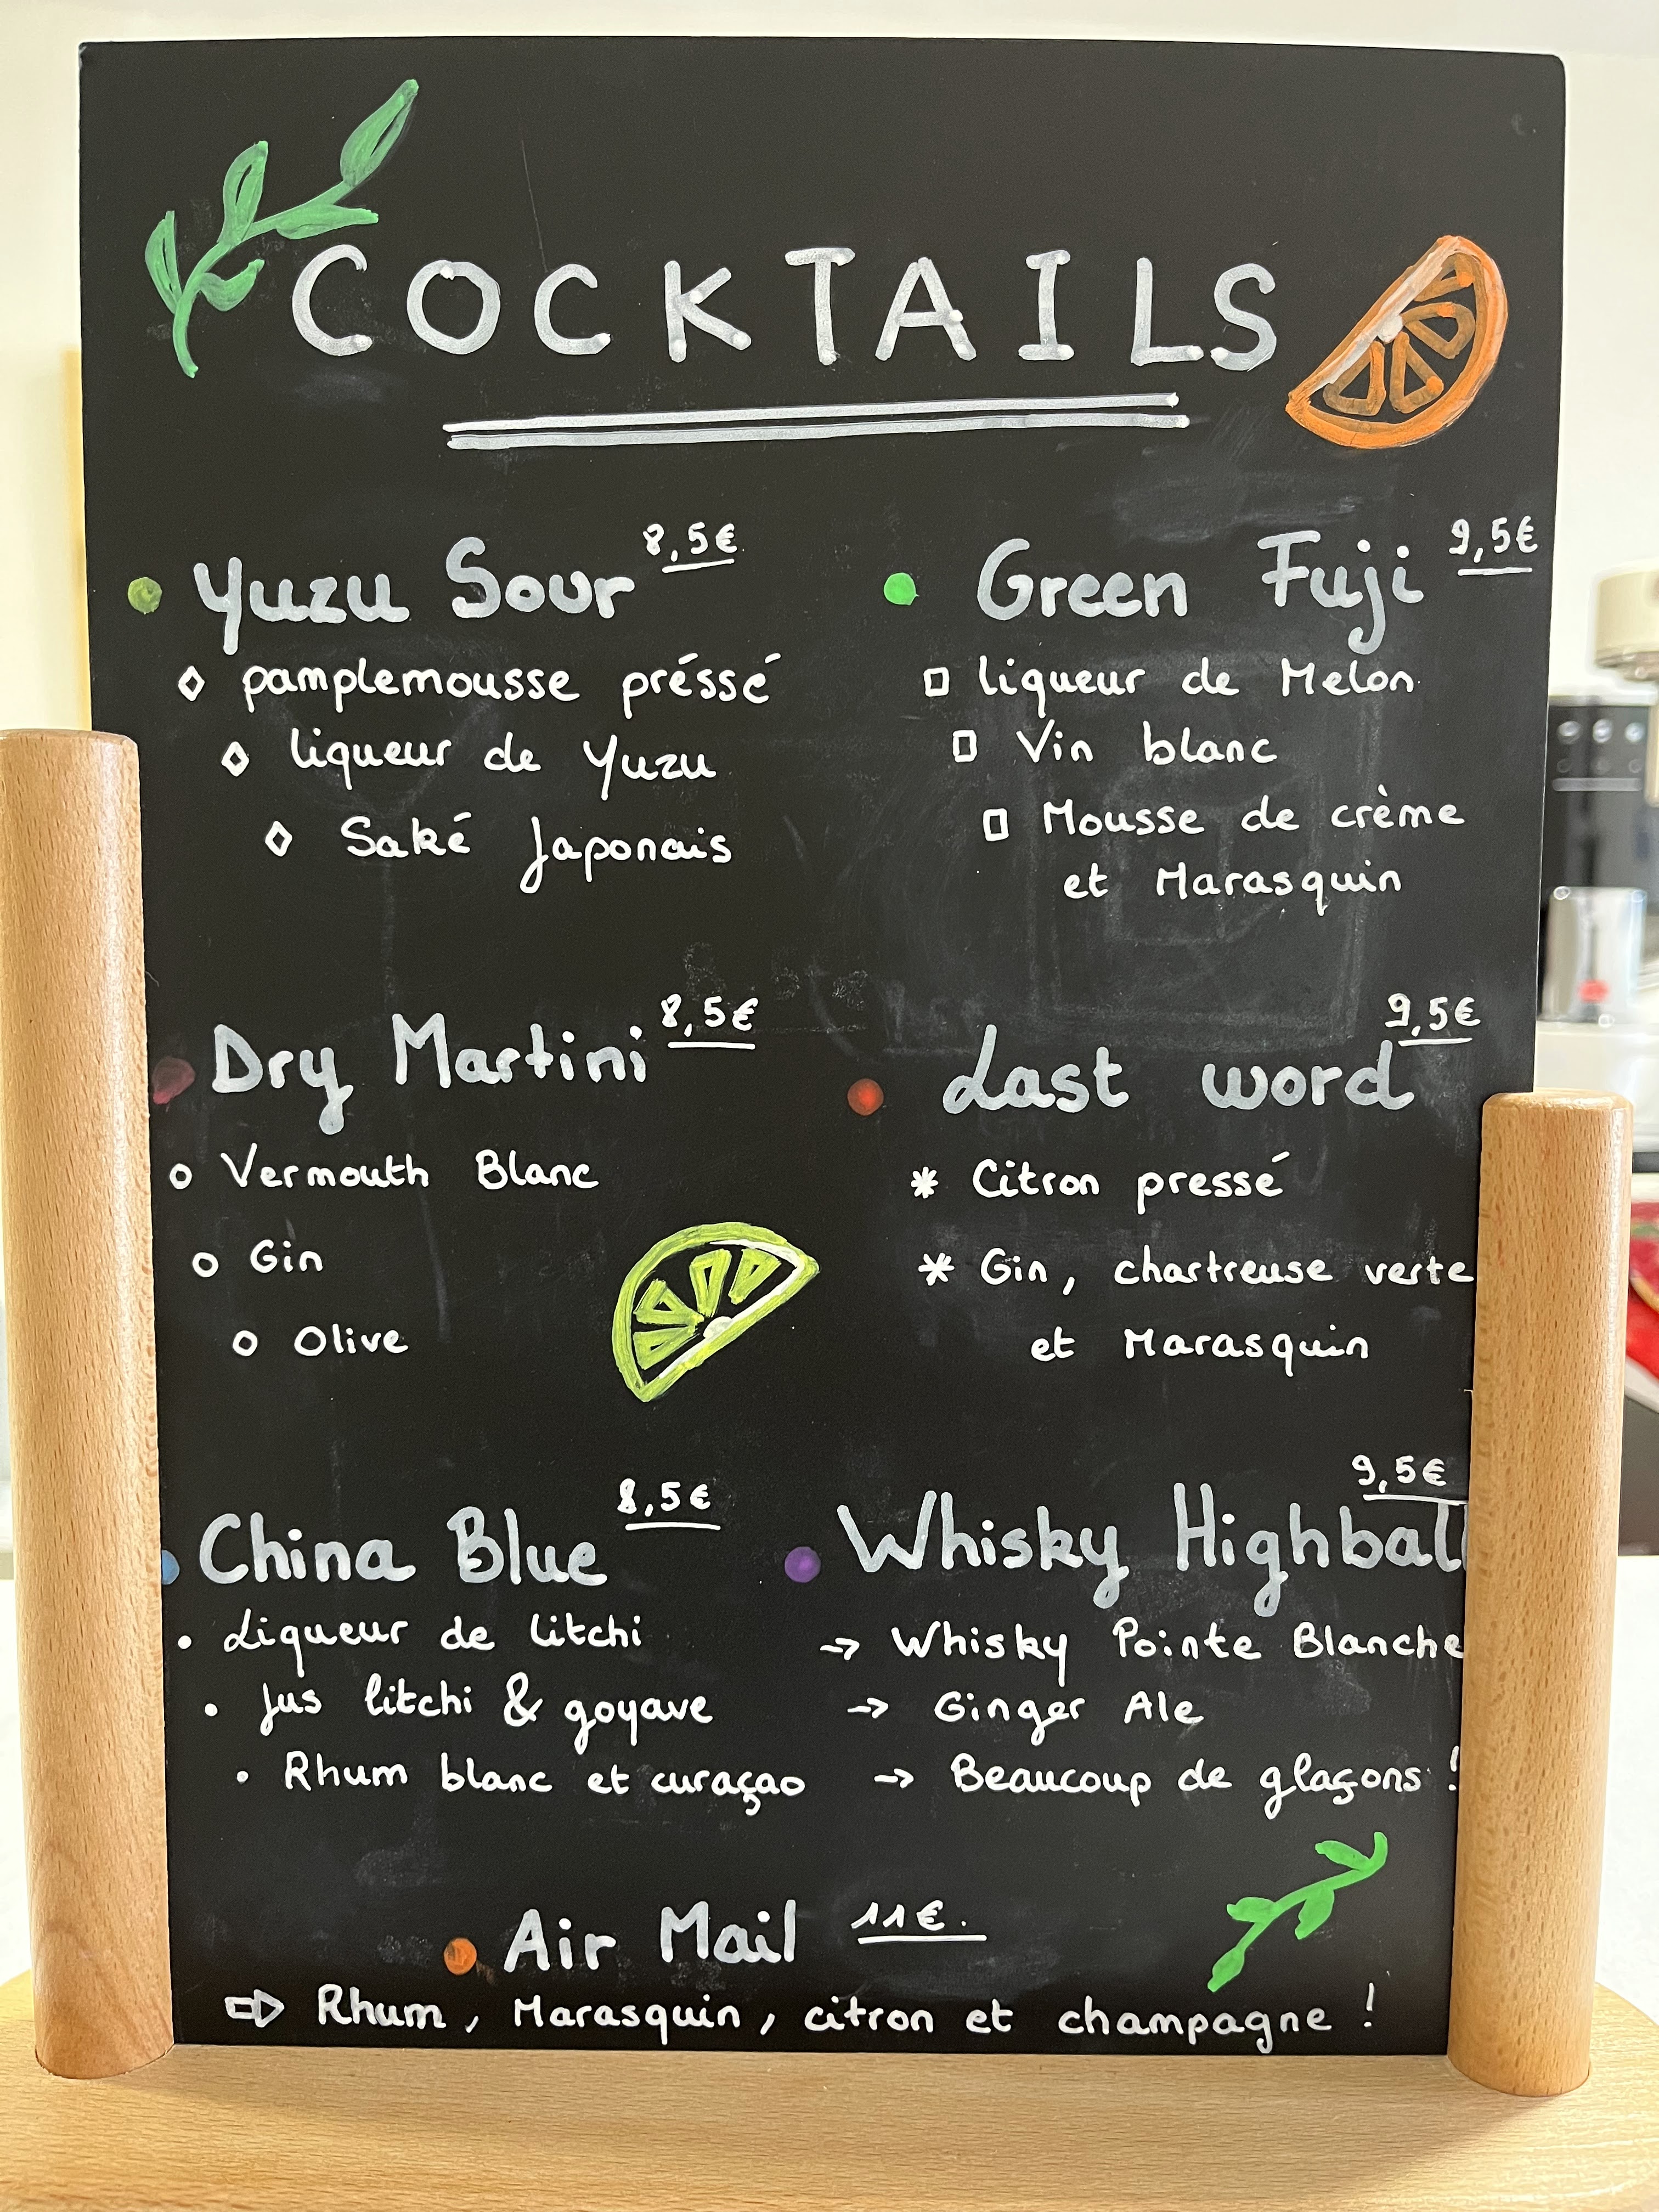 COCKTAILS
Yuzu Sour 8,5€
pamplemousse préssé
liqueur de Yuzu
Saké Japonais
Green Fuji 9,5€
liqueur de Melon
Vin blanc
Mousse de crème
et Marasquin
Dry Martini 8,5€
Vermouth Blanc
Gin
Olive
Last word 9,5€
Citron pressé
Gin, chartreuse verte
et Marasquin
China Blue 8,5€
Liqueur de litchi
Jus litchi & goyave
Rhum blanc et curaçao
Whisky Highball 9,5€
→ Whisky Pointe Blanche
→ Ginger Ale
→ Beaucoup de glaçons !
Air Mail 11€.
⇨ Rhum, Marasquin, citron et champagne !